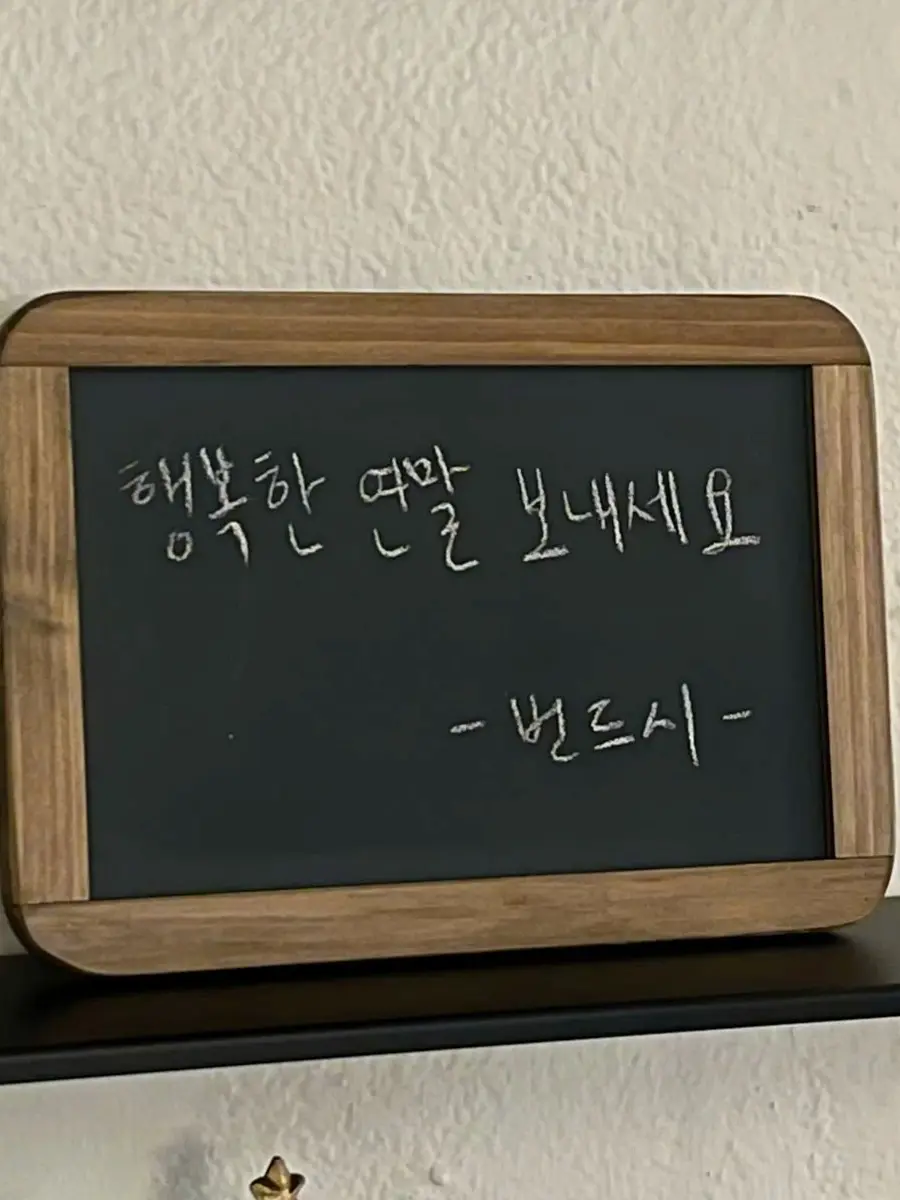 행복한 연말 보내세요
- 번드시 -